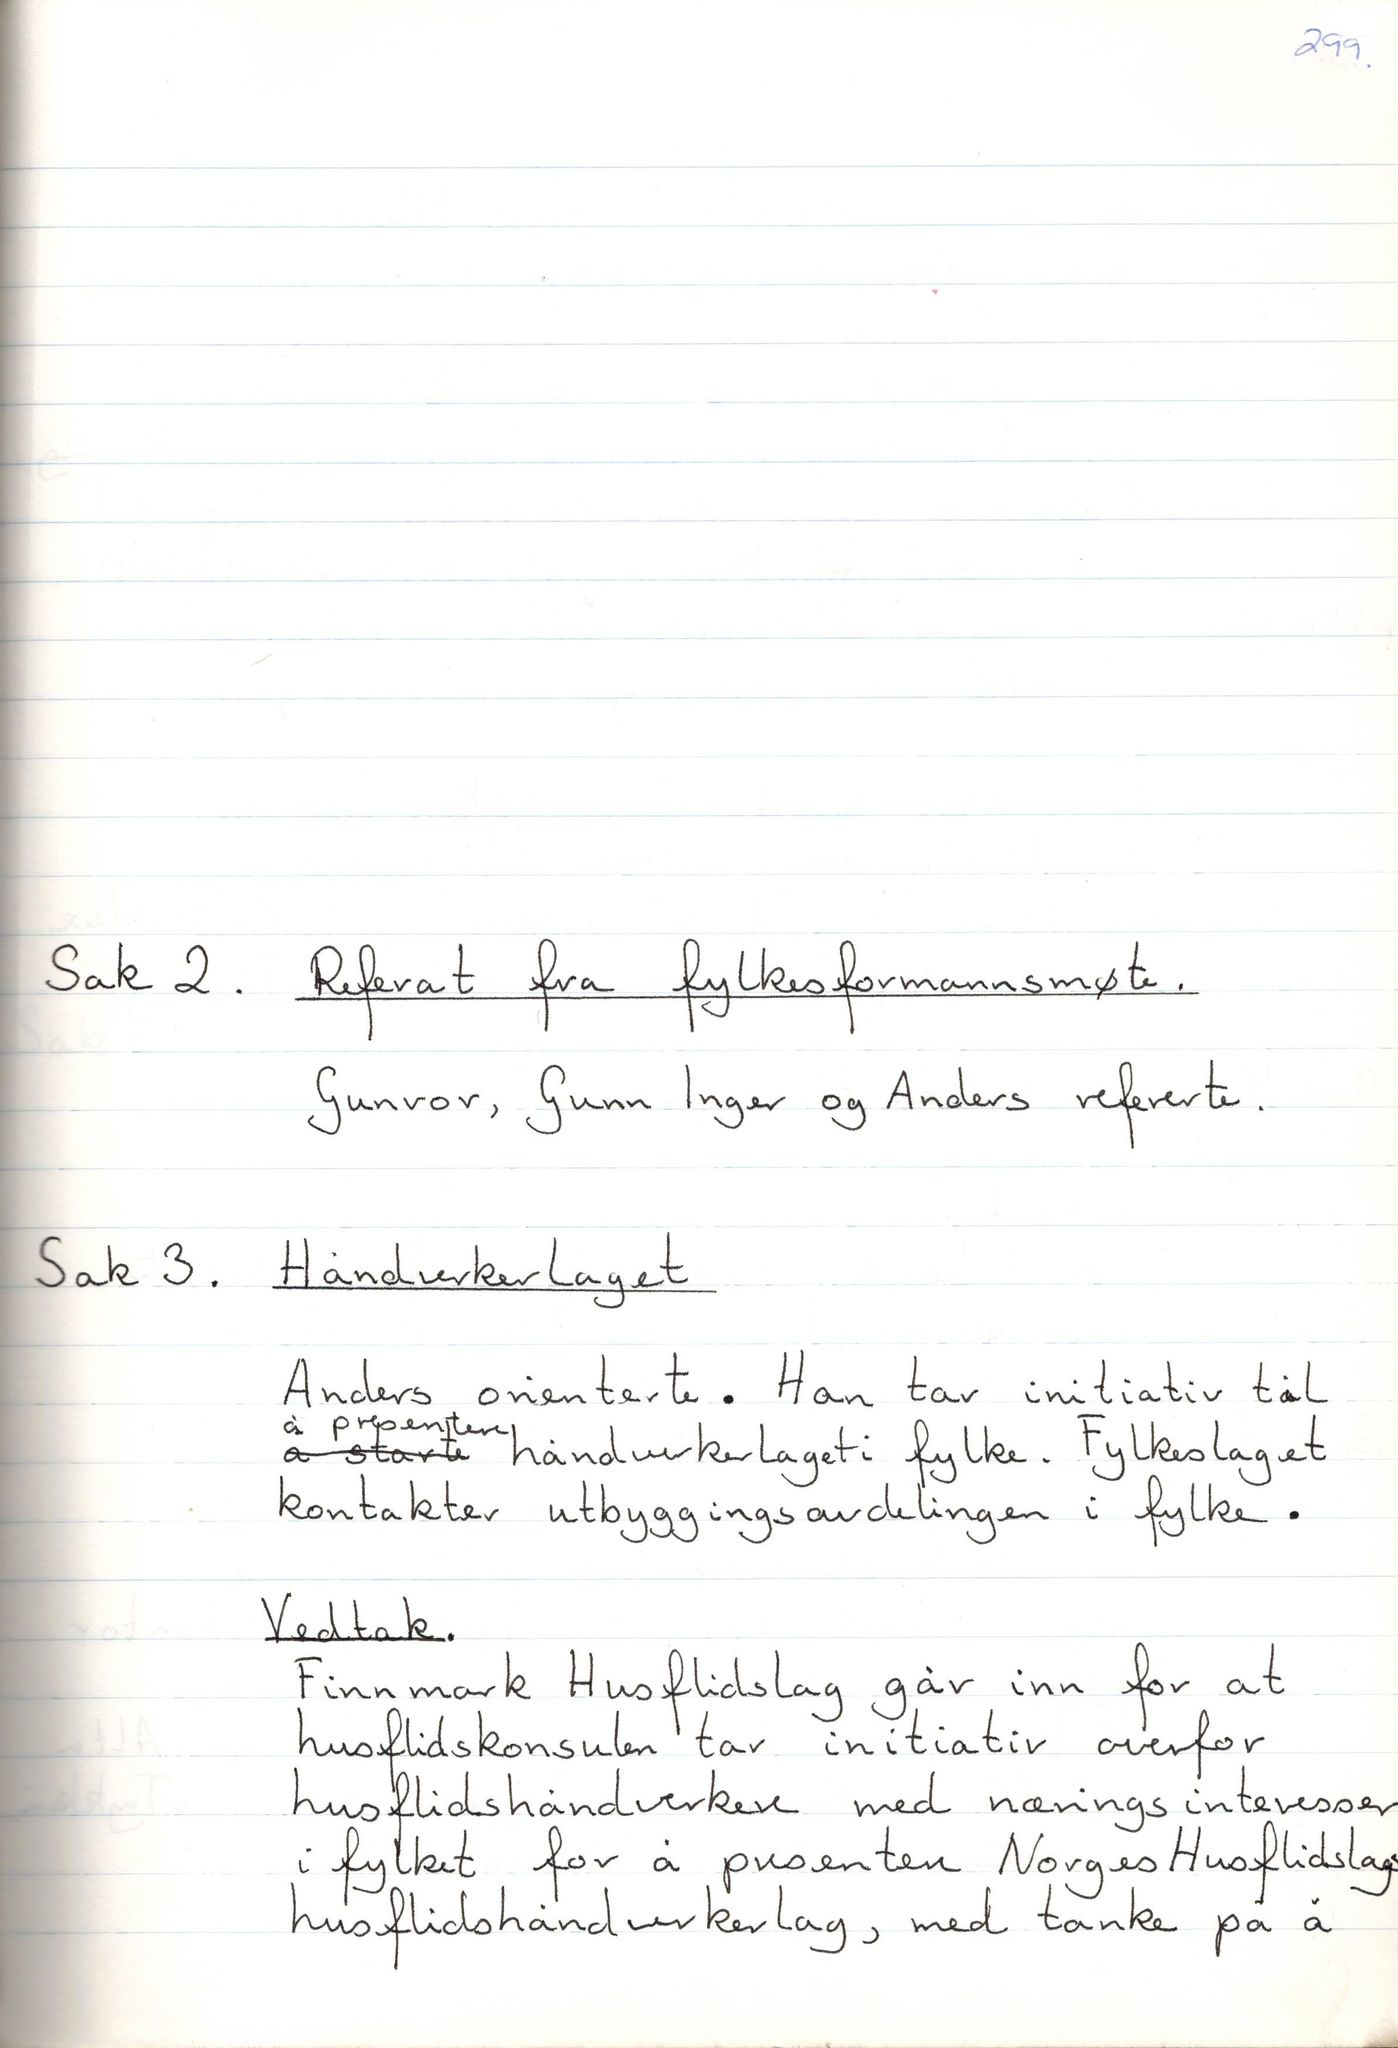 299.
Sak 2. Referat fra fylkesformannsmøte.
Gunvor, Gunn Inger og Anders refererte.
Sak 3. Håndverkerlaget
Anders orienterte. Han tar initiativ til
å presentere
å starte håndverkerlaget i fylke. Fylkeslaget
kontakter utbyggingsavdelingen i fylke.
Vedtak.
Finnmark Husflidslag går inn for at
husflidskonsulen tar initiativ overfor
husflidshåndverkere med næringsinteresser
i fylket for å presentere Norges Husflidslags
husflidshåndverkerlag, med tanke på å